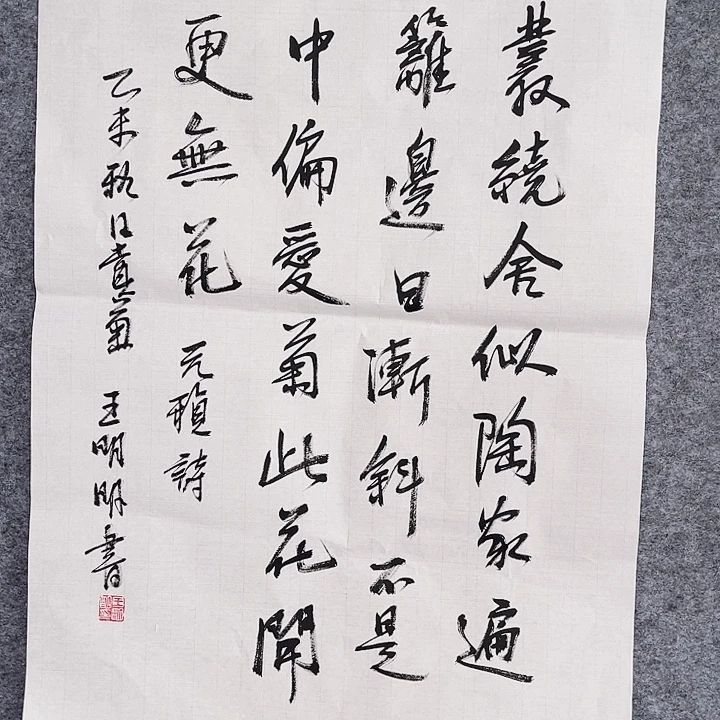 叢繞舍似陶家遍
籬邊日漸斜不是
中偏愛菊此花開
更無花 元稹詩
乙未秋日賞菊 王明明書